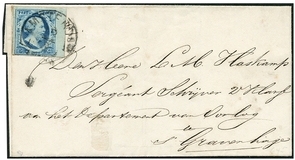 Den Heere L. M. Hastkamp
Sergeant Schrijver
van het Departement van Oorlog
te
's Gravenhage